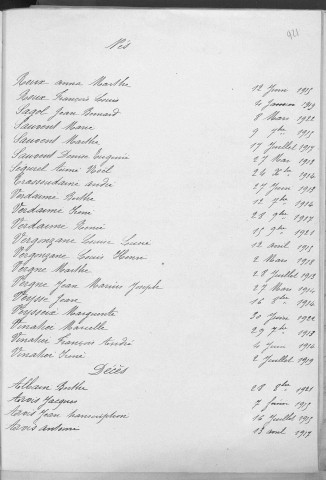 921
Nés
Roux Anna Marthe 12 Juin 1915
Roux François Louis 4 Janvier 1919
Sagol Jean 8 Mars 1922
Sauvent Marie 9 1915
Sauvent Marthe 17 Juillet 1917
Sauvent Eugénie 27 Mai 1918
Noel 24 Xbre 1914
André 27 Juin 1918
Verdanne Berthe 12 7bre 1914
Verdanne 28 9bre 1917
Verdanne Remi 15 9bre 1921
Vergonzane Lucie 12 Avril 1915
Vergonzane Louis Henri 2 Mars 1918
Vergne Marthe 28 Juillet 1918
Vergne Jean Marius Joseph 27 Mars 1914
Veysse Jean 16 8bre 1914
Veysseix Marguerite 20 Juin 1922
Vinatier Marcelle 29 7bre 1913
Vinatier François André 4 Juin 1914
Vinatier 2 Juillet 1919
Décès
Berthe 28 8bre 1921
Arvis Jacques 7 1915
Arvis Jean transcription 14 Juillet 1915
Arvis Antoine 13 avril 1917